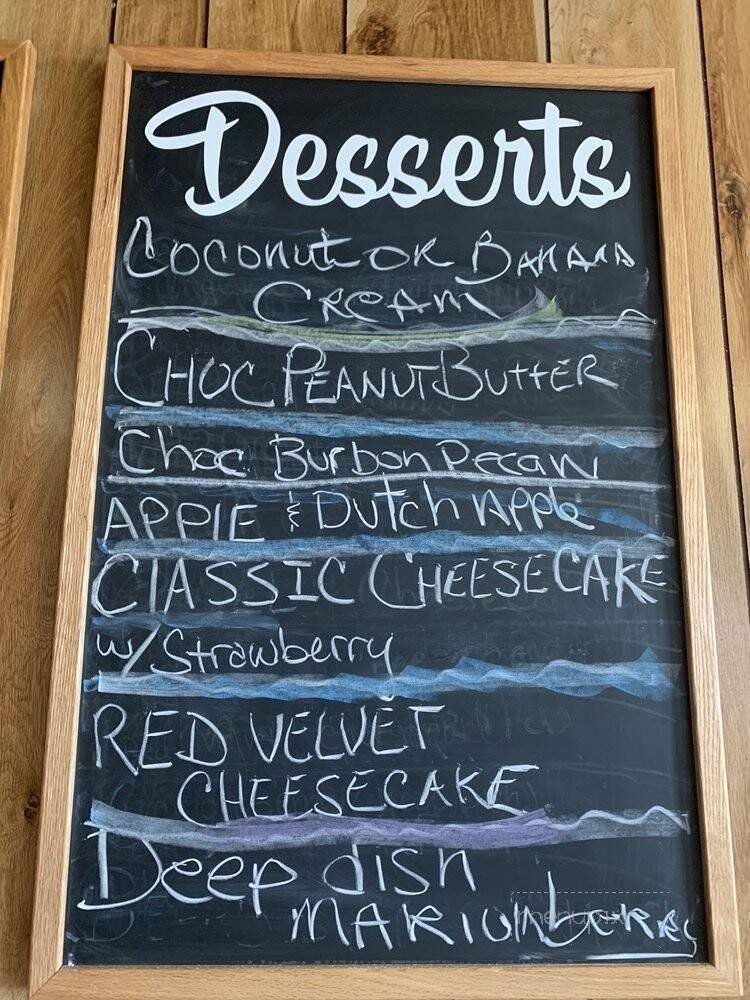 Desserts
COCONUT OR BANANA
CREAM
CHOC PEANUT BUTTER
Choc Burbon Pecan
APPlE & Dutch Apple
ClASSIC CHEESECAKE
w/ Strawberry
RED VELVET
CHEESECAKE
Deep dish
MARIONberry
menupix